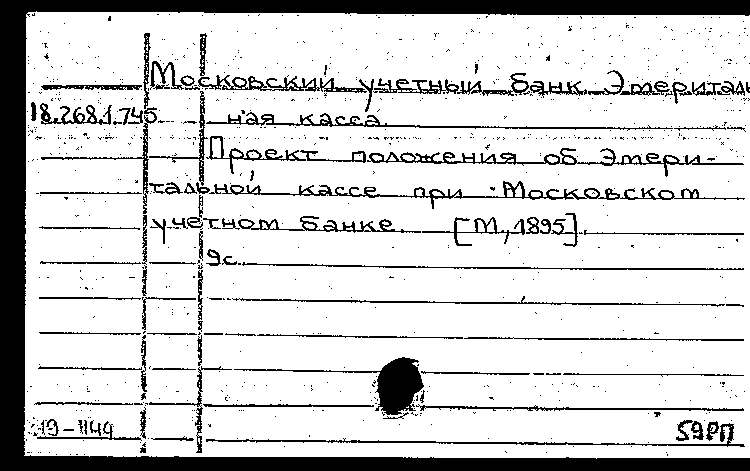 Московский учетный банк. Эмериталь
18.268.1.745 ная касса.
Проект положения об Эмери-
тальной кассе при Московском
учетном банке. [М., 1895].
9с.
19-1144 59РП